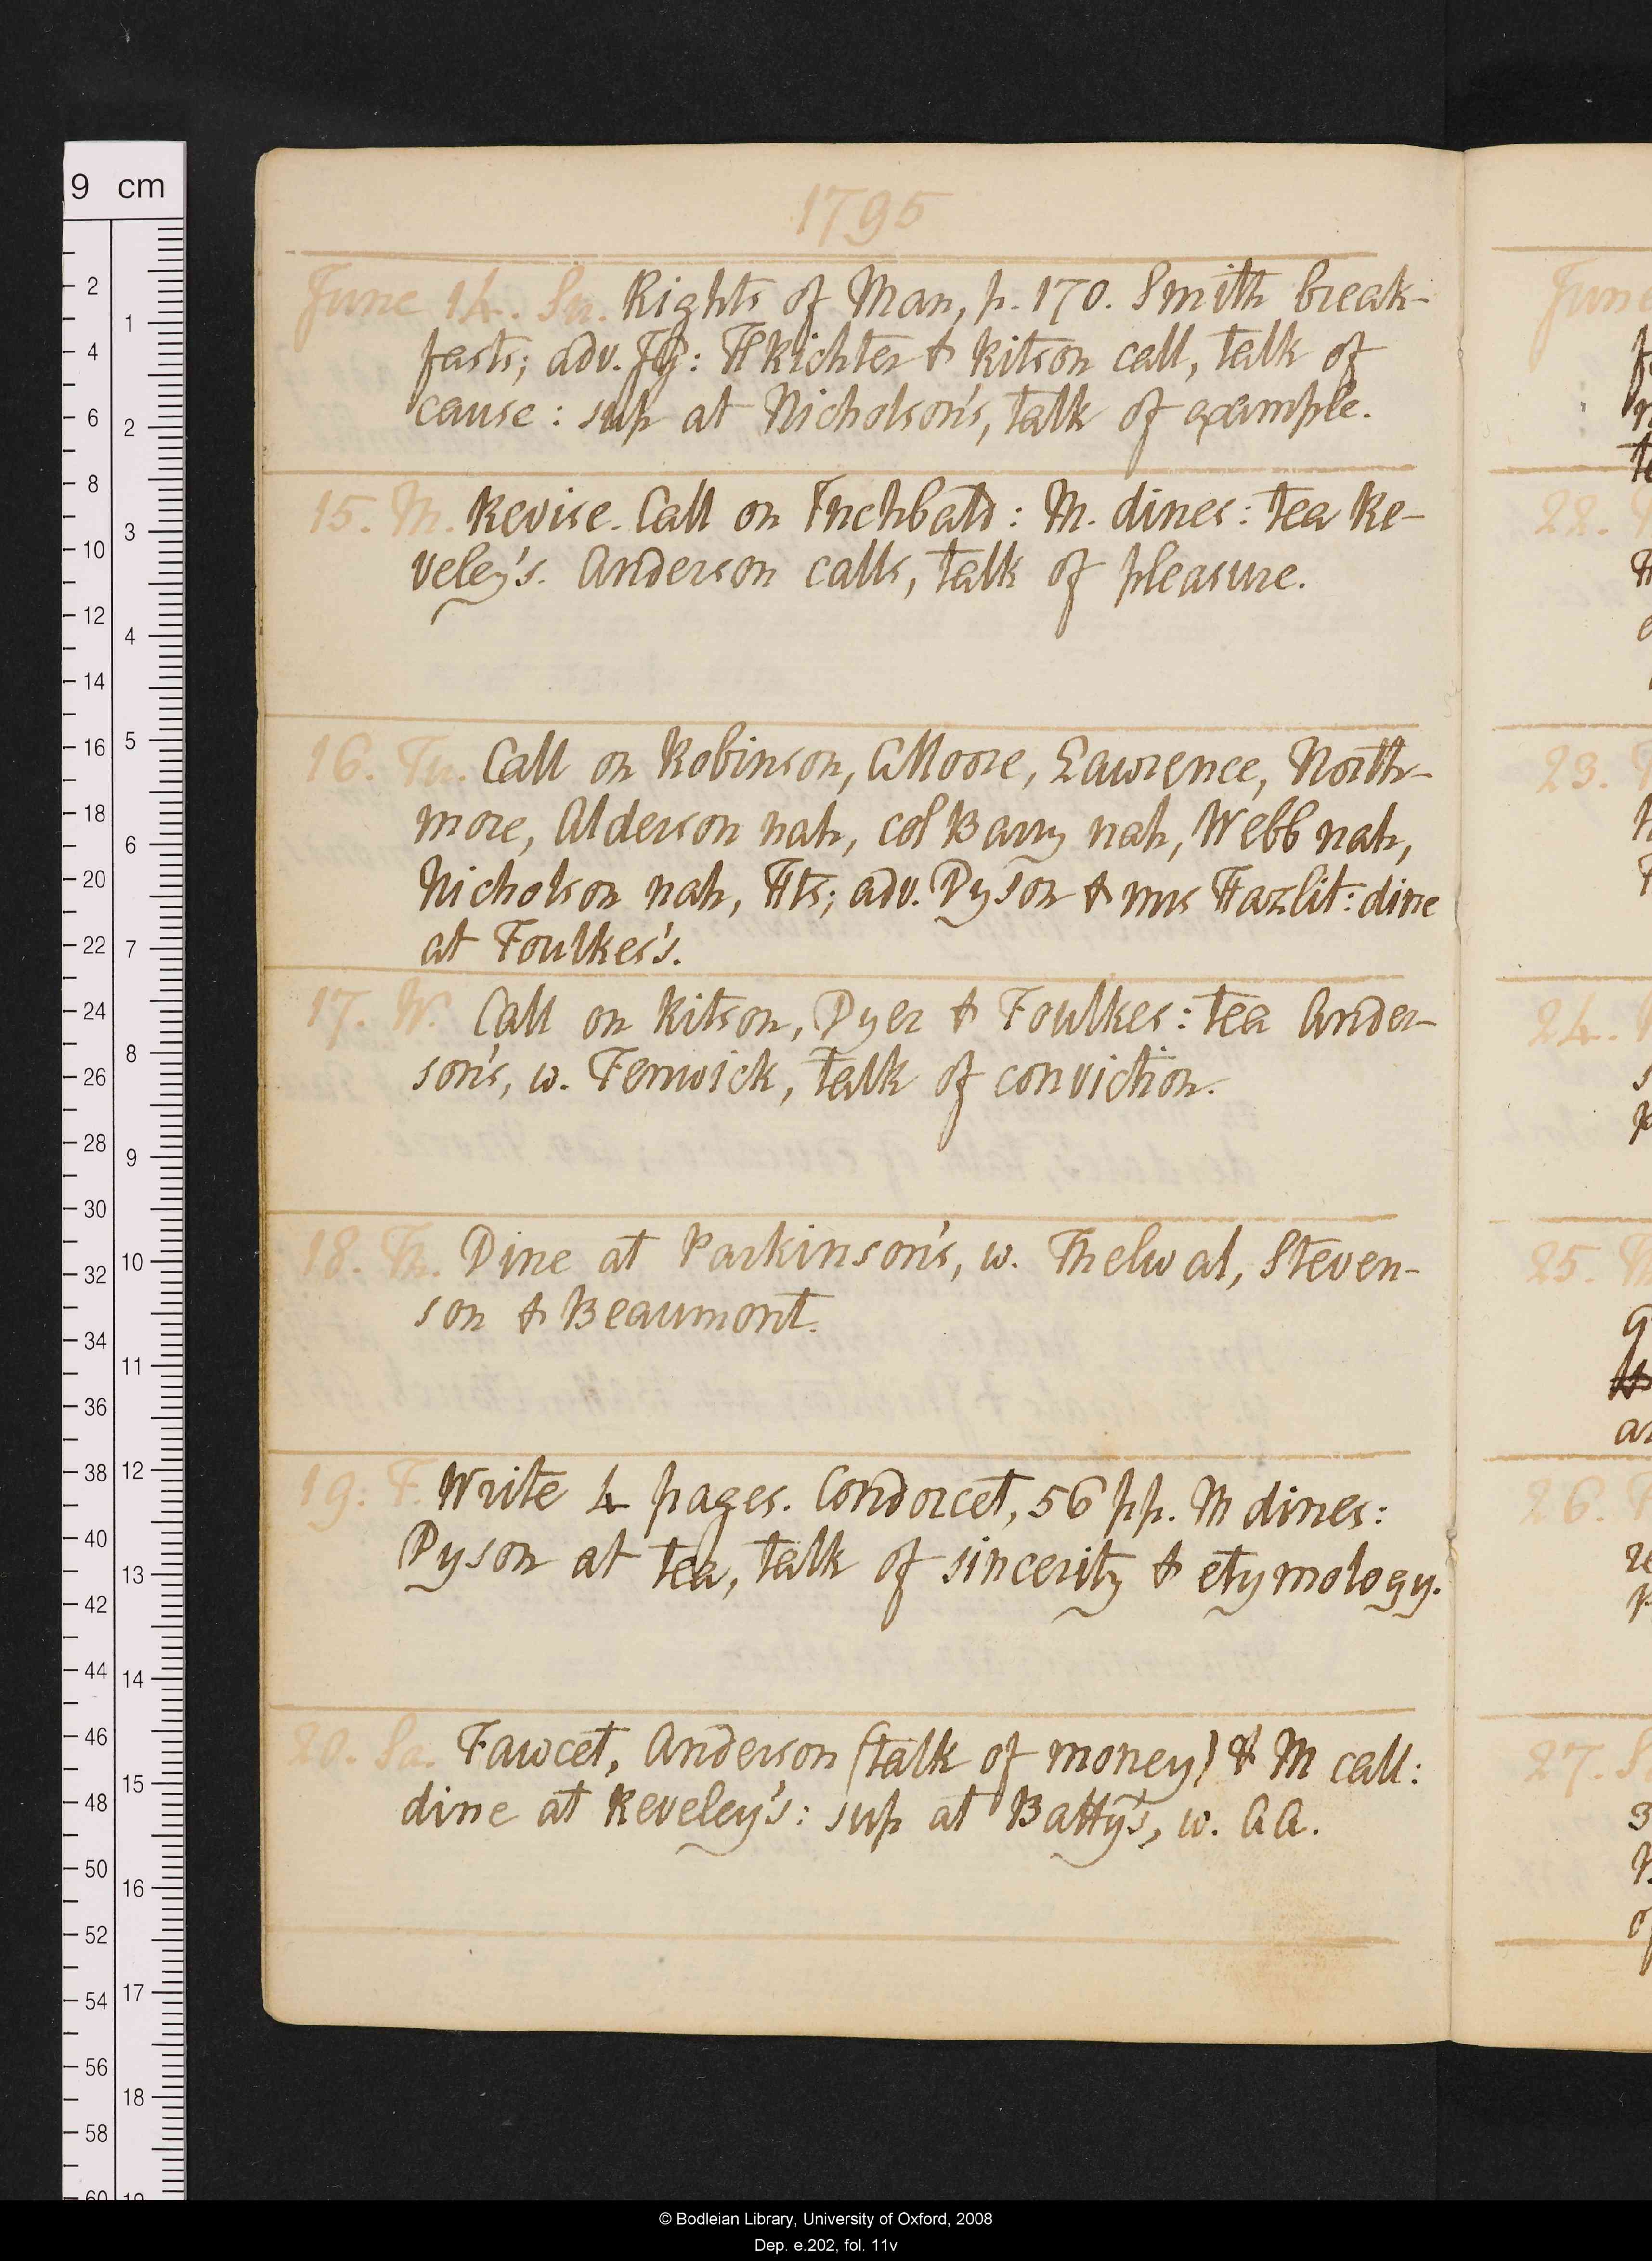 1795
June 14. Su. Rights of Man, p. 170. Smith break-
fasts; adv. Jg: H Richter & Ritson call, talk of
cause: sup at Nicholson's, talk of example.
15. M. Revise. Call on Inchbald: M. dines: tea Re-
veley's. Anderson calls, talk of pleasure.
16. Tu. Call on Robinson, GMoore, Lawrence, North-
more, Alderson nah, col Barry nah, Webb nah,
Nicholson nah, Hts; adv. Dyson & mrs Hazlit: dine
at Foulkes's.
17. W. Call on Ritson, Dyer & Foulkes: tea Ander-
son's, w. Fenwick, talk of conviction.
18. Th. Dine at Parkinson's, w. Thelwal, Steven-
son & Beaumont.
19. F. Write 4 pages. Condorcet, 56 pp. M dines:
Dyson at tea, talk of sincerity & etymology.
20. Sa. Fawcet, Anderson (talk of money) & M call:
dine at Reveley's: sup at Batty's, w. AA.
June
22.
23.
24.
25.
26.
27.
9 cm
2 4 6 8 10 12 14 16 18 20 22 24 26 28 30 32 34 36 38 40 42 44 46 48 50 52 54 56 58 60
1 2 3 4 5 6 7 8 9 10 11 12 13 14 15 16 17 18 19
© Bodleian Library, University of Oxford, 2008
Dep. e.202, fol. 11v